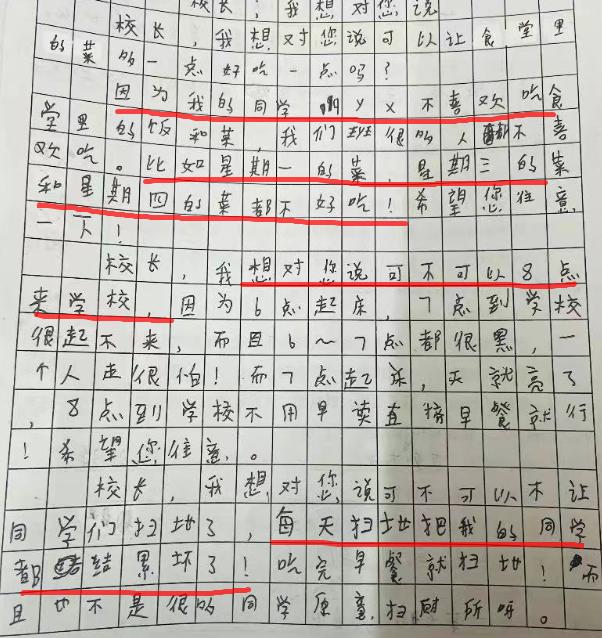 校长，我想对您说
校长，我想对您说可以让食堂里
的菜的一点好吃一点吗？
因为我的同学 yyx不喜欢吃食
堂里的饭和菜，我们班很的人都不喜
欢吃。比如星期一的菜，星期三的菜
和星期四的菜都不好吃！希望您住意
一下！
校长，我想对您说可不可以8点
来学校，因为6点起床，7点到学校
很起不来，而且6～7点都很黑，一
个人走很怕！而7点起床，天就亮了
，8点到学校不用早读直接早餐就行
！希望您住意。
校长，我想对您说可不可以不让
同学们扫地了，每天扫地把我的同学
都给累坏了！吃完早餐就扫地！而
且也不是很的同学愿意扫厕所呀。